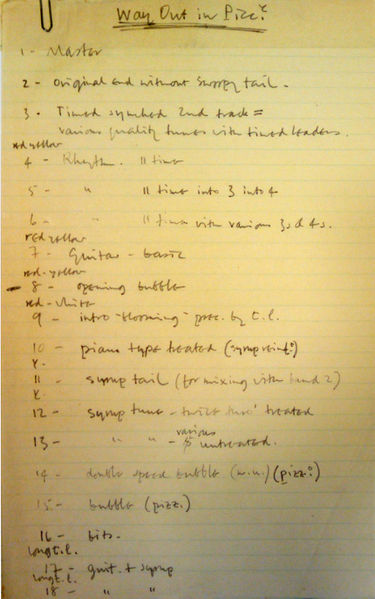 Way Out in Pizz?
1 - Master
2 - Original end without swoopy tail.
3 - Timed synched 2nd track =
various quality tunes with timed leaders.
red yellow
4 - Rhythm. " time
5 - " " time into 3 into 4
6 - " " time with various 3s & 4s.
red yellow
7 - Guitar - basic
red-yellow
8 - opening bubble
red-white
9 - intro "blooming" prec. by t.l.
10 - piano type treated
Y.
11 - syrup tail (for mixing with band 2)
Y.
12 - syrup tune - treated
various
13 - " " - untreated.
14 - double speed bubble (pizz?)
15 - bubble (pizz.)
16 - bits.
long t.l.
17 - guit. + syrup
long t.l.
18 - " "